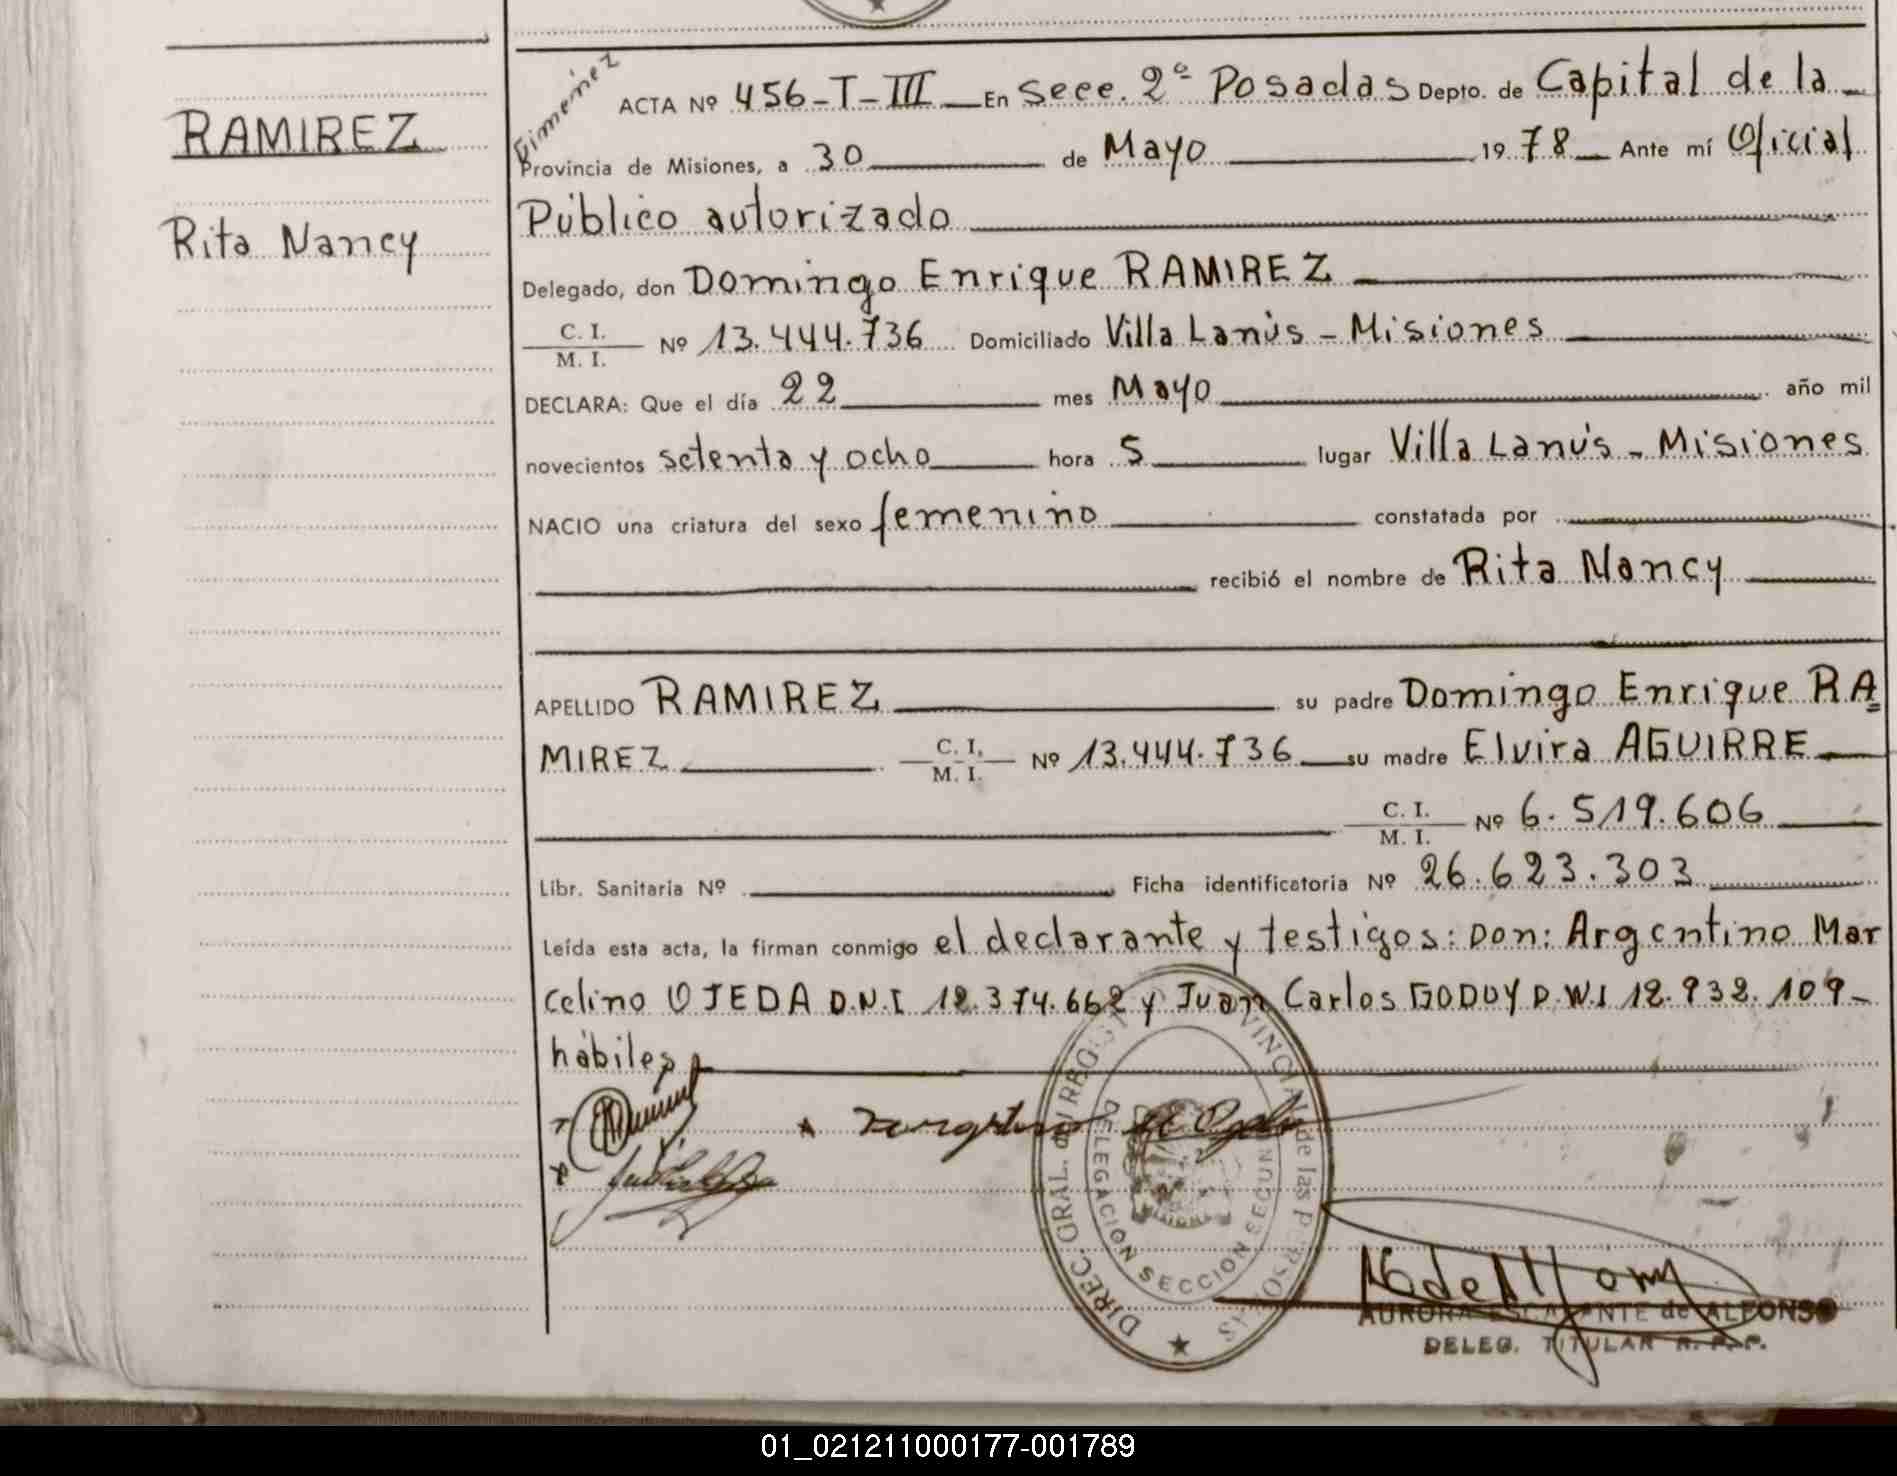 RAMIREZ
Rita Nancy
Gimenez
ACTA Nº 456-T-III En Secc. 2º Posadas Depto. de Capital de la
Provincia de Misiones, a 30 de Mayo 1978 Ante mí Oficial
Público autorizado
Delegado, don Domingo Enrique RAMIREZ
C. I.
M. I. Nº 13.444.736 Domiciliado Villa Lanús - Misiones
DECLARA: Que el día 22 mes Mayo año mil
novecientos setenta y ocho hora 5 lugar Villa Lanús - Misiones
NACIO una criatura del sexo femenino constatada por
recibió el nombre de Rita Nancy
APELLIDO RAMIREZ su padre Domingo Enrique RA=
MIREZ C. I. M. I. Nº 13.444.736 su madre Elvira AGUIRRE
C. I. M. I. Nº 6.519.606
Libr. Sanitaria Nº Ficha identificatoria Nº 26.623.303
Leída esta acta, la firman conmigo el declarante y testigos: Don: Argentino Mar
celino OJEDA D.N.I 12.374.662 y Juan Carlos GODOY D.N.I 12.932.109-
hábiles
DIREC. GRAL. REGIST PROVINCIAL de las PERSONAS
DELEGACION SECCION SEGUNDA
AURORA ESCALANTE de ALFONSO
DELEG. TITULAR R. P. P.
01_021211000177-001789